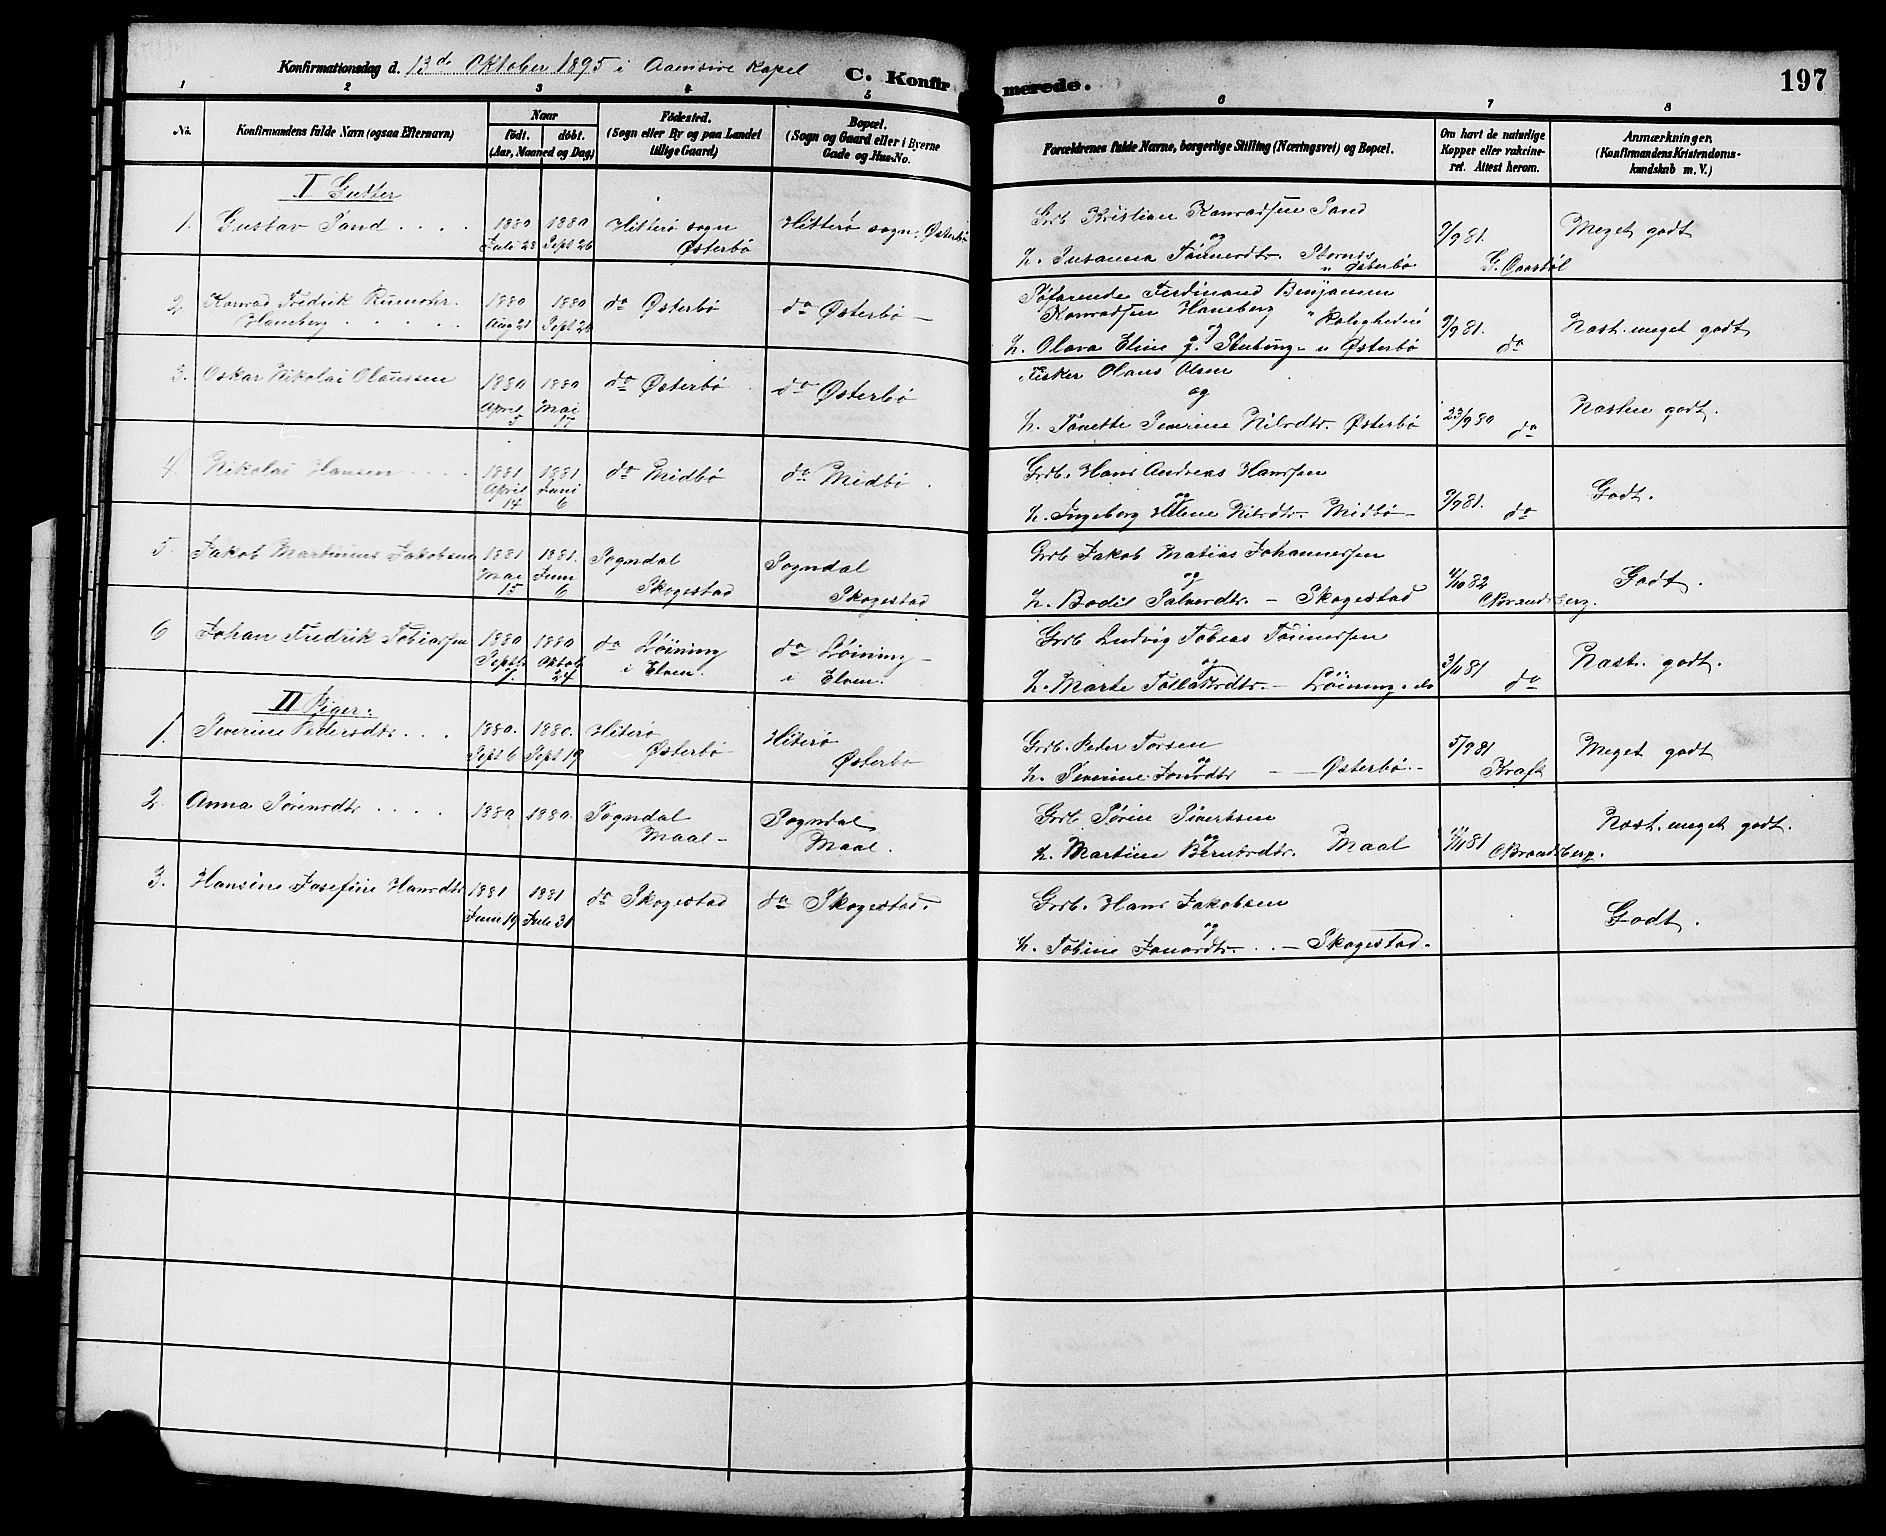 Konfirmationsdag d. 13de Oktober 1895 i Aamsire Kapel
C. Konfirmerede.
197
1 2 3 4 5 6 7 8
No.
Konfirmandens fulde Navn (ogsaa Efternavn)
Naar
födt. döbt.
(Aar, Maaned og Dag)
Födested.
(Sogn eller By og paa Landet
tillige Gaard)
Bopæl.
(Sogn og Gaard eller i Byerne
Gade og Hus-No.
Forældrenes fulde Navne, borgerlige Stilling (Næringsvei) og Bopæl.
Om havt de naturlige
Kopper eller vakcine-
ret. Attest herom.
Anmærkninger,
(Konfirmandens Kristendoms-
kundskab m. V.)
I Gutter
1. Gustav Sand . . . .
1880 Juli 28
1880 Sept 26
Hitterø sogn
Østerbø
Hitterø sogn. Østerbø
Grb Kristian Konradsen Sand
og
h. Susanna Tønnesdtr.
" Østerbø
9/9 81.
G. Vaarbøl
Meget godt
2. Konrad Fredrik Rumohr
Haneberg . . . . .
1880 Aug 21
1880 Sept 26
do Østerbø
do Østerbø —
Søfarende Ferdinand Benjamen
Konradsen Haneberg "Roligheden"
og
h. Olava Eline f. Stubing - u Østerbø
9/9 81.
do
Nast. meget godt
3. Oskar Nikolai Olaussen
1880 April 5
1880 Mai 17
do Østerbø
do Østerbø
Fisker Olaus Olsen
og
h. Tanette Severine Nilsdtr. Østerbø
23/9 80
do
Nasten godt.
4. Nikolai Hansen . . . .
1881 April 14
1881 Juni 6
do Midbø
do Midbø .
Grb. Hans Andreas Hanssen
og
h. Ingeborg Helene Nilsdtr. Midbø —
9/9 81.
do
Godt.
5. Jakob Martinius Jakobsen
1881 Mai 15
1881. Juni 6
Sogndal
Skogestad
Sogndal
Skogestad
Grb Jakob Matias Johannessen
og
h. Bodil Salvesdtr. — Skogestad
4/10 82
CBrandsberg.
Godt.
6 Johan Fredrik Tobiassen
1880 Septb 7.
1880 Oktob 24
do Løining
i Elven.
do Løining —
i Elven.
Grb Ludvig Tobias Tønnessen
og
h. Marte Tollaksdtr. — Løining. do
3/11 81
do
Nast. godt.
II Piger.
1. Severine Pedersdtr. . . .
1880. Sept 6
1880. Sept 19
Hiterø
Østerbø
Hiterø
Østerbø
Grb. Peder Torsen
og
h. Severine Jonsdtr — — Østerbø. —
5/9 81
Kraft
Meget godt
2. Anna Sørensdtr . . . .
1880
1880.
Sogndal
Maal —
Sogndal
Maal.
Grb Søren Sivertsen
og
h. Martine Berntsdtr. Maal
4/11 81
CBrandsberg.
Nast. meget godt.
3. Hansine Josefine Hansdtr
1881 Juni 19
1881 Juli 31
do Skogestad
do Skogestad.
Grb. Hans Jakobsen
og
h. Tobine Jonasdtr. . . — Skogestad.
Godt.